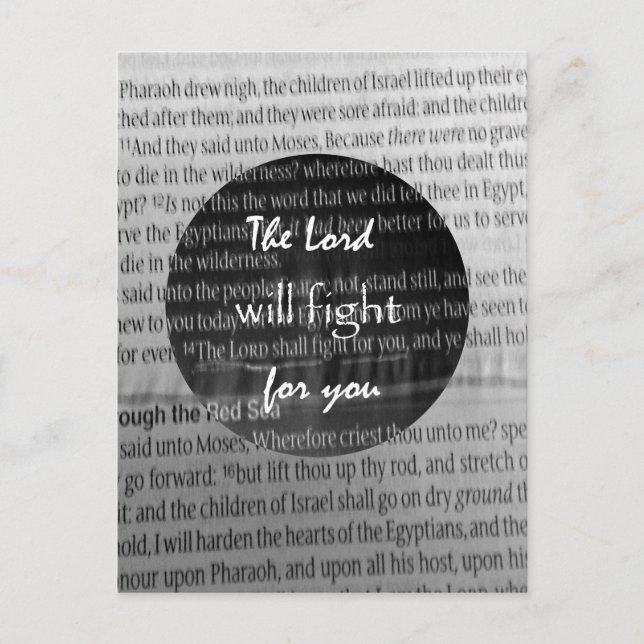 Pharaoh drew nigh, the children of Israel lifted up their ey
hed after them; and they were sore afraid: and the childre
11And they said unto Moses, Because there were no grave
to die in the wilderness? wherefore hast thou dealt thus
ypt? 12Is not this the word that we did tell thee in Egypt,
rve the Egyptians been better for us to serve
die in the wilderness.
said unto the people, not, stand still, and see the
hew to you today: ye have seen to
for ever. 14The LORD shall fight for you, and ye shall hol
The Lord
will fight
for you
ough the Red Sea
said unto Moses, Wherefore criest thou unto me? spe
y go forward: 16but lift thou up thy rod, and stretch o
it: and the children of Israel shall go on dry ground
hold, I will harden the hearts of the Egyptians, and the
onour upon Pharaoh, and upon all his host, upon his
that I am the LORD, whe